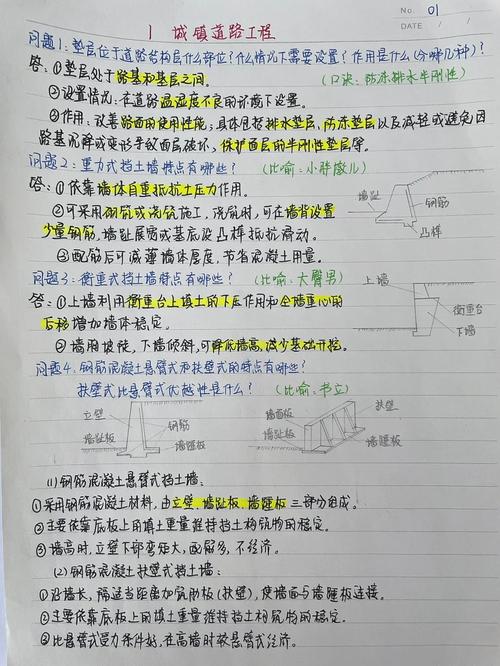 No. 01
DATE / /
1 城镇道路工程
问题1:垫层位于道路结构层什么部位?什么情况下需要设置?作用是什么(分哪几种)?
答:①垫层处于路基和基层之间。 (口诀:防冻排水半刚性)
②设置情况:在道路温湿度不良的环境下设置。
③作用:改善路面的使用性能;具体包括排水垫层,防冻垫层以及减轻或避免因
路基沉降或变形导致面层破坏,保护面层的半刚性垫层等。
问题2:重力式挡土墙特点有哪些? (比喻:小胖墩儿)
答:①依靠墙体自重抵抗土压力作用。
②可采用砌筑或浇筑施工,浇筑时,可在墙背设置
少量钢筋,墙趾展宽或基底设凸榫抵抗滑动。
③配筋后可减薄墙体厚度,节省混凝土用量。
墙趾
钢筋
凸榫
问题3:衡重式挡土墙特点有哪些? (比喻:大臀男)
答:①上墙利用衡重台上填土的下压作用和全墙重心的
后移增加墙体稳定。
②墙胸坡陡,下墙倾斜,可降低墙高,减少基础开挖。
上墙
衡重台
下墙
问题4:钢筋混凝土悬臂式和扶壁式的特点有哪些?
扶壁式比悬臂式优越性是什么? (比喻:书立)
立壁
钢筋
墙趾板
墙踵板
墙面板
扶壁
墙趾板
墙踵板
(1)钢筋混凝土悬臂式挡土墙:
①采用钢筋混凝土材料,由立壁、墙趾板、墙踵板三部分组成。
②主要依靠底板上的填土重量维持挡土构筑物的稳定。
③墙高时,立壁下部弯矩大,配筋多,不经济。
(2)钢筋混凝土扶壁式挡土墙:
①沿墙长,隔适当距离加筑肋板(扶壁),使墙面与墙踵板连接。
②主要依靠底板上的填土重量维持挡土构筑物的稳定。
③比悬臂式受力条件好,在高墙时较悬臂式经济。